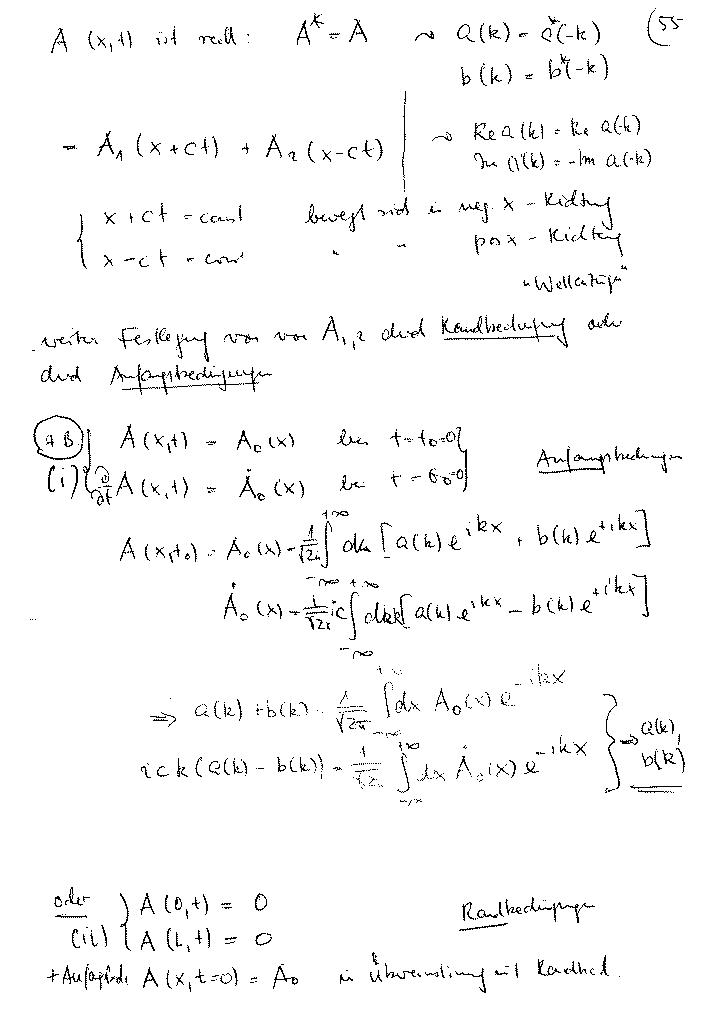 A (x,t) ist reell : A* = A ⤳ a(k) = a*(-k) (55
b(k) = b*(-k)
= A₁ (x+ct) + A₂ (x-ct) ⤳ Re a(k) = Re a(-k)
Im a(k) = -Im a(-k)
{ x + ct = const bewegt sich in neg. x - Richtung
x - ct = const " " pos x - Richtung
"Wellenzüge"
weitere Festlegung von von A₁,₂ durch Randbedingung oder
durch Anfangsbedingungen
z B A (x,t) = A₀ (x) bei t = t₀ = 0
(i) ∂/∂t A (x,t) = Ȧ₀ (x) bei t = t₀ = 0 Anfangsbedingungen
A(x,t₀) = A₀(x) = 1/√2π ∫_{-∞}^{+∞} dk [a(k) e^{ikx} + b(k) e^{+ikx}]
Ȧ₀(x) = 1/√2π ic ∫_{-∞}^{+∞} dk k [a(k) e^{ikx} - b(k) e^{+ikx}]
⇒ a(k) + b(k) = 1/√2π ∫_{-∞}^{+∞} dx A₀(x) e^{-ikx}
i c k (a(k) - b(k)) = 1/√2π ∫_{-∞}^{+∞} dx Ȧ₀(x) e^{-ikx} } ⇒ a(k), b(k)
oder A (0,t) = 0 Randbedingungen
(ii) A (L,t) = 0
+ Anfangsbed. A (x,t=0) = A₀ in Übereinstimmung mit Randbed.